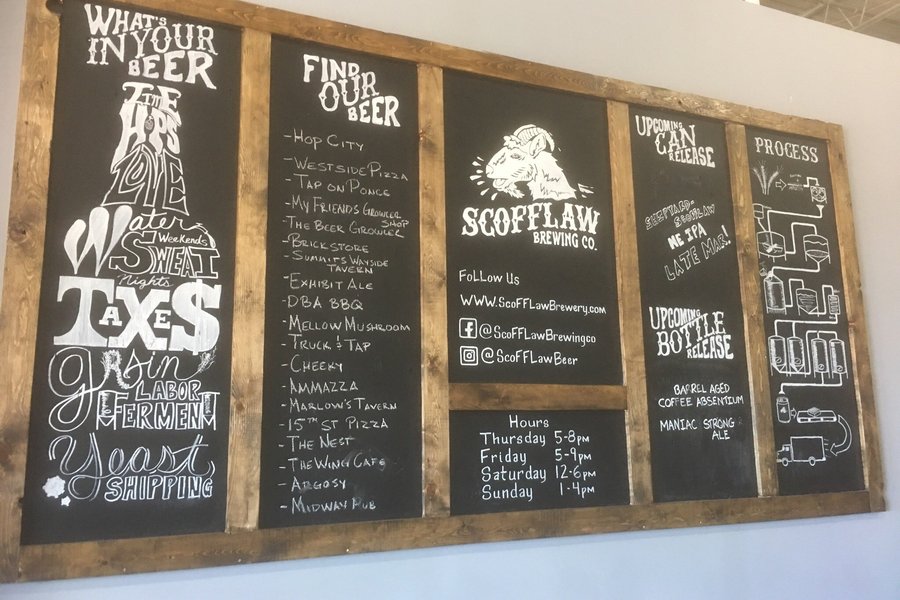 WHAT'S
IN YOUR
BEER
TIME
HOPS
LOVE
Water
Weekends
SWEAT
Nights
TAXE$
grain
LABOR
FERMENT
Yeast
SHIPPING
FIND
OUR
BEER
- HOP CITY
- WESTSIDE PIZZA
- TAP ON PONCE
- MY FRIENDS GROWLER
SHOP
- THE BEER GROWLER
- BRICKSTORE
- SUMMITS WAYSIDE
TAVERN
- EXHIBIT ALE
- DBA BBQ
- MELLOW MUSHROOM
- TRUCK & TAP
- CHEEKY
- AMMAZZA
- MARLOW'S TAVERN
- 15TH ST PIZZA
- THE NEST
- THE WING CAFE
- ARGOSY
- MIDWAY PUB
SCOFFLAW
BREWING CO.
FOLLOW US
WWW.SCOFFLAWBREWERY.COM
@SCOFFLAWBREWINGCO
@SCOFFLAWBEER
Hours
Thursday 5-8pm
Friday 5-9pm
Saturday 12-6pm
Sunday 1-4pm
UPCOMING
CAN
RELEASE
SCOFFLAW
NE IPA
LATE MAR!
UPCOMING
BOTTLE
RELEASE
BARREL AGED
COFFEE ABSENTIUM
MANIAC STRONG
ALE
PROCESS